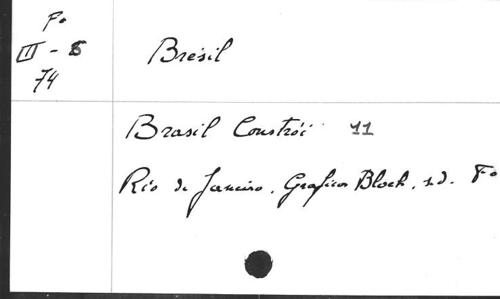 Fo
III - 5
74
Brésil
Brasil Constrói 11
Rio de Janeiro, Graficos Bloch, s.d. Fo